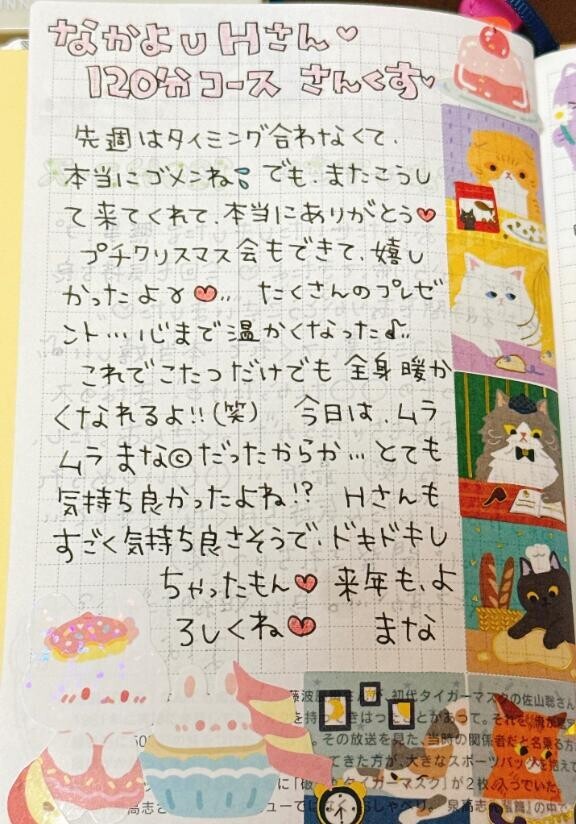 なかよし Hさん♡
120分コース さんくす♡
先週はタイミング合わなくて、
本当にゴメンね💦でも、またこうし
て来てくれて、本当にありがとう♥
プチクリスマス会もできて、嬉し
かったよɤ♥‥ たくさんのプレゼ
ント…心まで温かくなった♪‥
これでこたつだけでも 全身 暖か
くなれるよ!!(笑) 今日は、ムラ
ムラ まな©だったからか…とても
気持ち良かったよね!? Hさんも
すごく気持ち良さそうで、ドキドキし
ちゃったもん♥ 来年も、よ
ろしくね♥ まな
初代タイガーマスクの佐山聡さん
その放送を見た、当時の関係者だと名乗る方
てきた方が、大きなスポーツバッグを抱えて
タイガーマスク」が2枚入っていた。